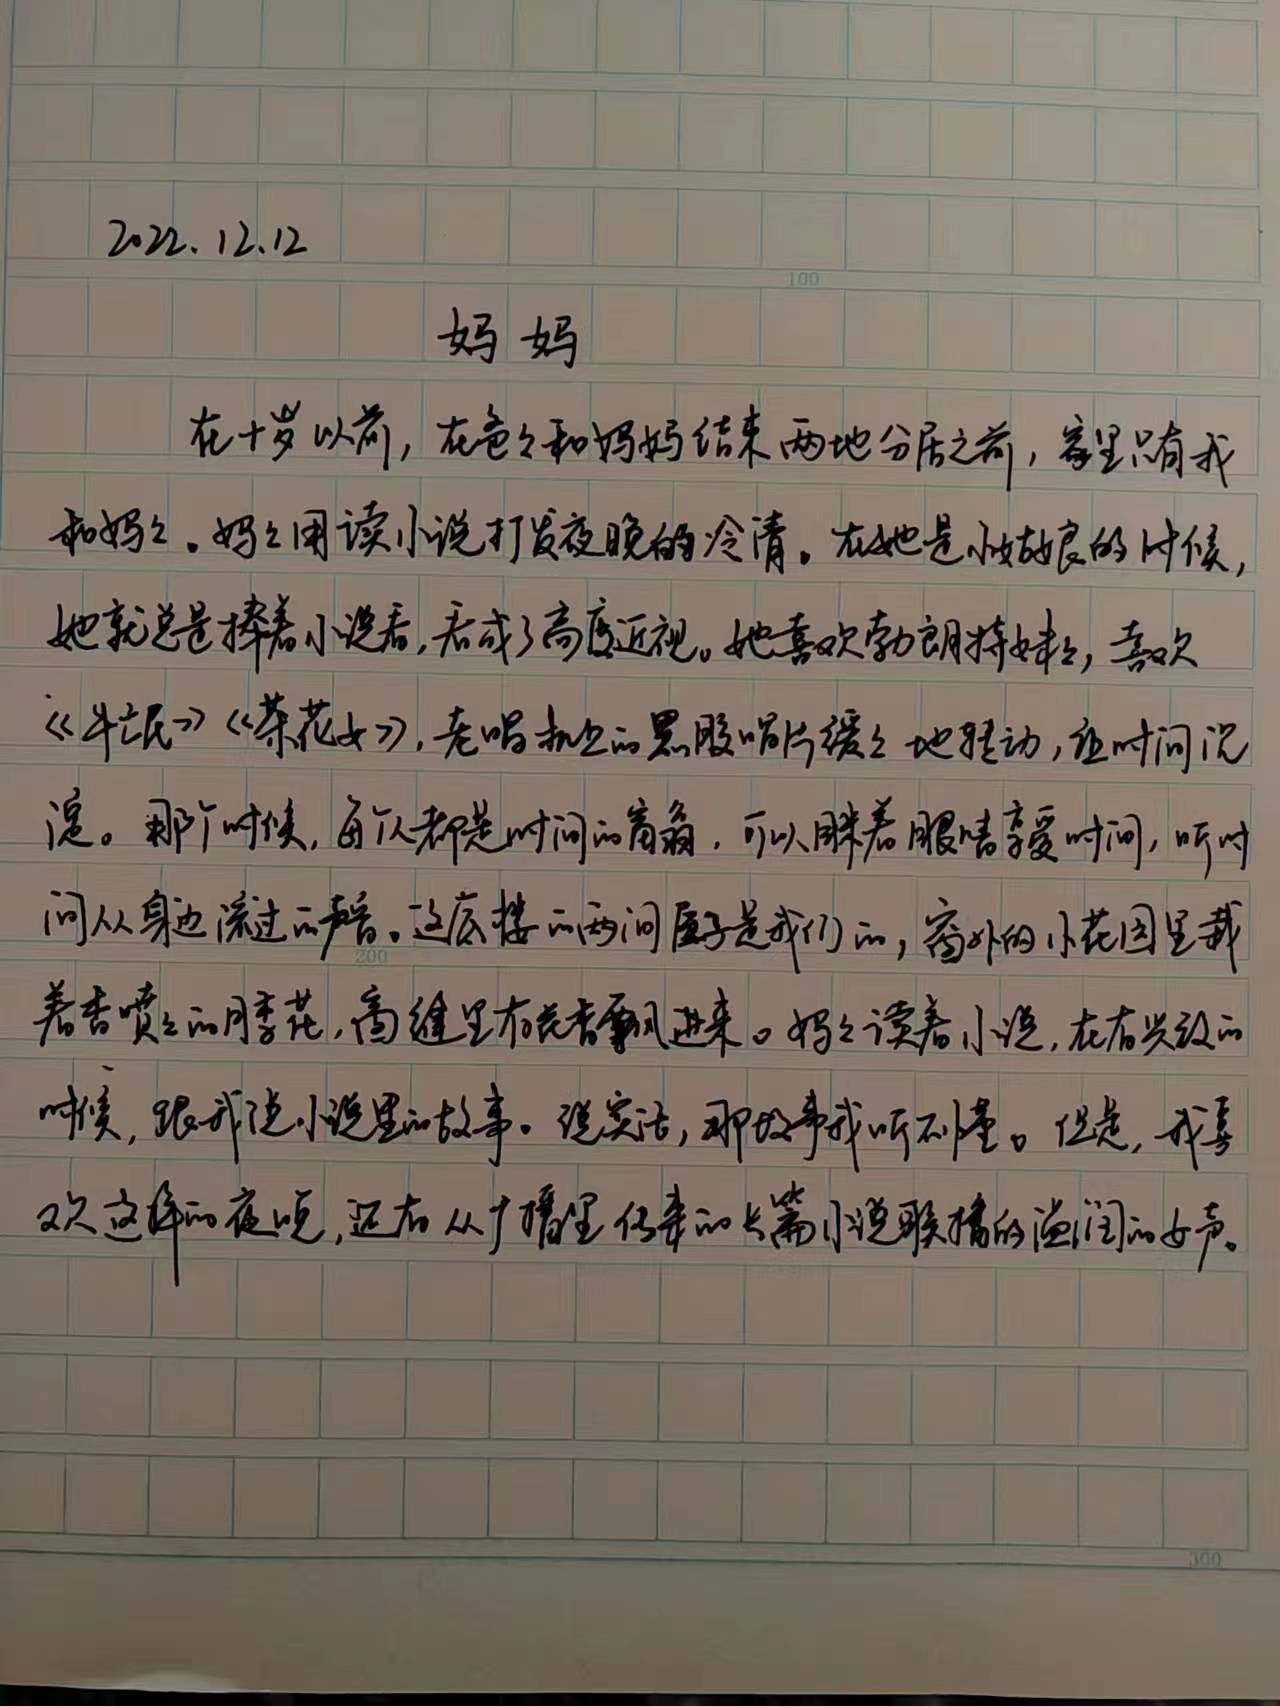 100
2022.12.12
妈妈
在十岁以前,在爸々和妈妈结束两地分居之前,家里只有我
和妈々。妈々用读小说打发夜晚的冷清。在她是小姑娘的时候,
她就总是捧着小说看,看成了高度近视。她喜欢勃朗特妹々,喜欢
《牛虻》《茶花女》,老唱机上的黑胶唱片缓々地转动,让时间沉
淀。那个时候,每个人都是时间的富翁,可以眯着眼睛享受时间,听时
间从身边流过的声音。这底楼的两间屋子是我们的,窗外的小花园里栽
200
着香喷々的月季花,窗缝里有花香飘进来。妈々读着小说,在有兴致的
时候,跟我说小说里的故事。说实话,那故事我听不懂。但是,我喜
欢这样的夜晚,还有从广播里传来的长篇小说联播的温润的女声。
300